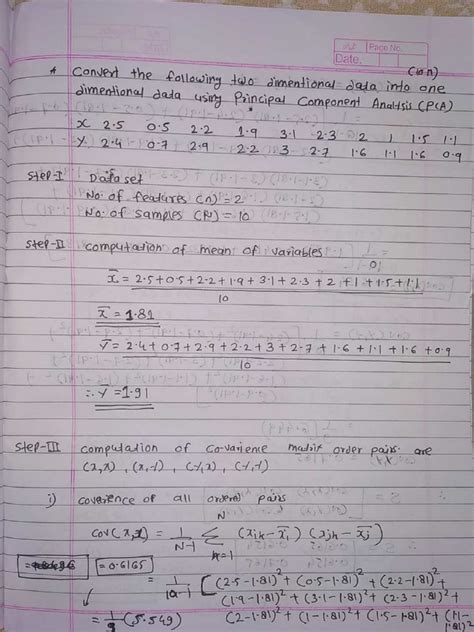 Page No.
Date.
(10 M)
* Convert the following two dimentional data into one
dimentional data using Principal Component Analysis (PCA)
X 2.5 0.5 2.2 1.9 3.1 2.3 2 1 1.5 1.1
Y 2.4 0.7 2.9 2.2 3 2.7 1.6 1.1 1.6 0.9
Step-I Dataset
No. of features (n) = 2
No. of samples (N) = 10
Step-II computation of mean of variables
x̄ = 2.5+0.5+2.2+1.9+3.1+2.3+2+1+1.5+1.1
10
x̄ = 1.81
ȳ = 2.4+0.7+2.9+2.2+3+2.7+1.6+1.1+1.6+0.9
10
∴ ȳ = 1.91
Step-III computation of co-varience matrix order pairs are
(x,x), (x,y), (y,x), (y,y)
i) coverence of all ordered pairs
cov(x,x) = 1/N-1 N Σ k=1 (xik - x̄i) (xjk - x̄j)
= 0.6165
= 1/10-1 [(2.5-1.81)² + (0.5-1.81)² + (2.2-1.81)² +
(1.9-1.81)² + (3.1-1.81)² + (2.3-1.81)² +
= 1/9 (5.549) (2-1.81)² + (1-1.81)² + (1.5-1.81)² + (1.1-
1.81)²